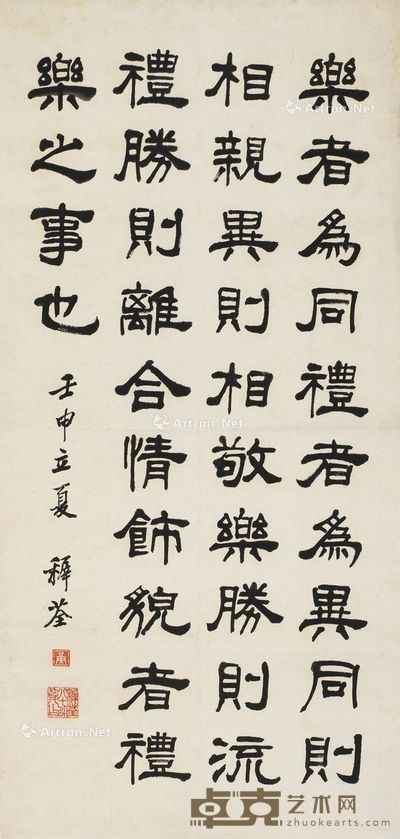 樂者為同禮者為異同則
相親異則相敬樂勝則流
禮勝則離合情飾貌者禮
樂之事也
壬申立夏 稺荃
Artron.Net
Artron.Net
Artron.Net
Artron.Net
Artron.Net
卓克艺术网
zhuokearts.com